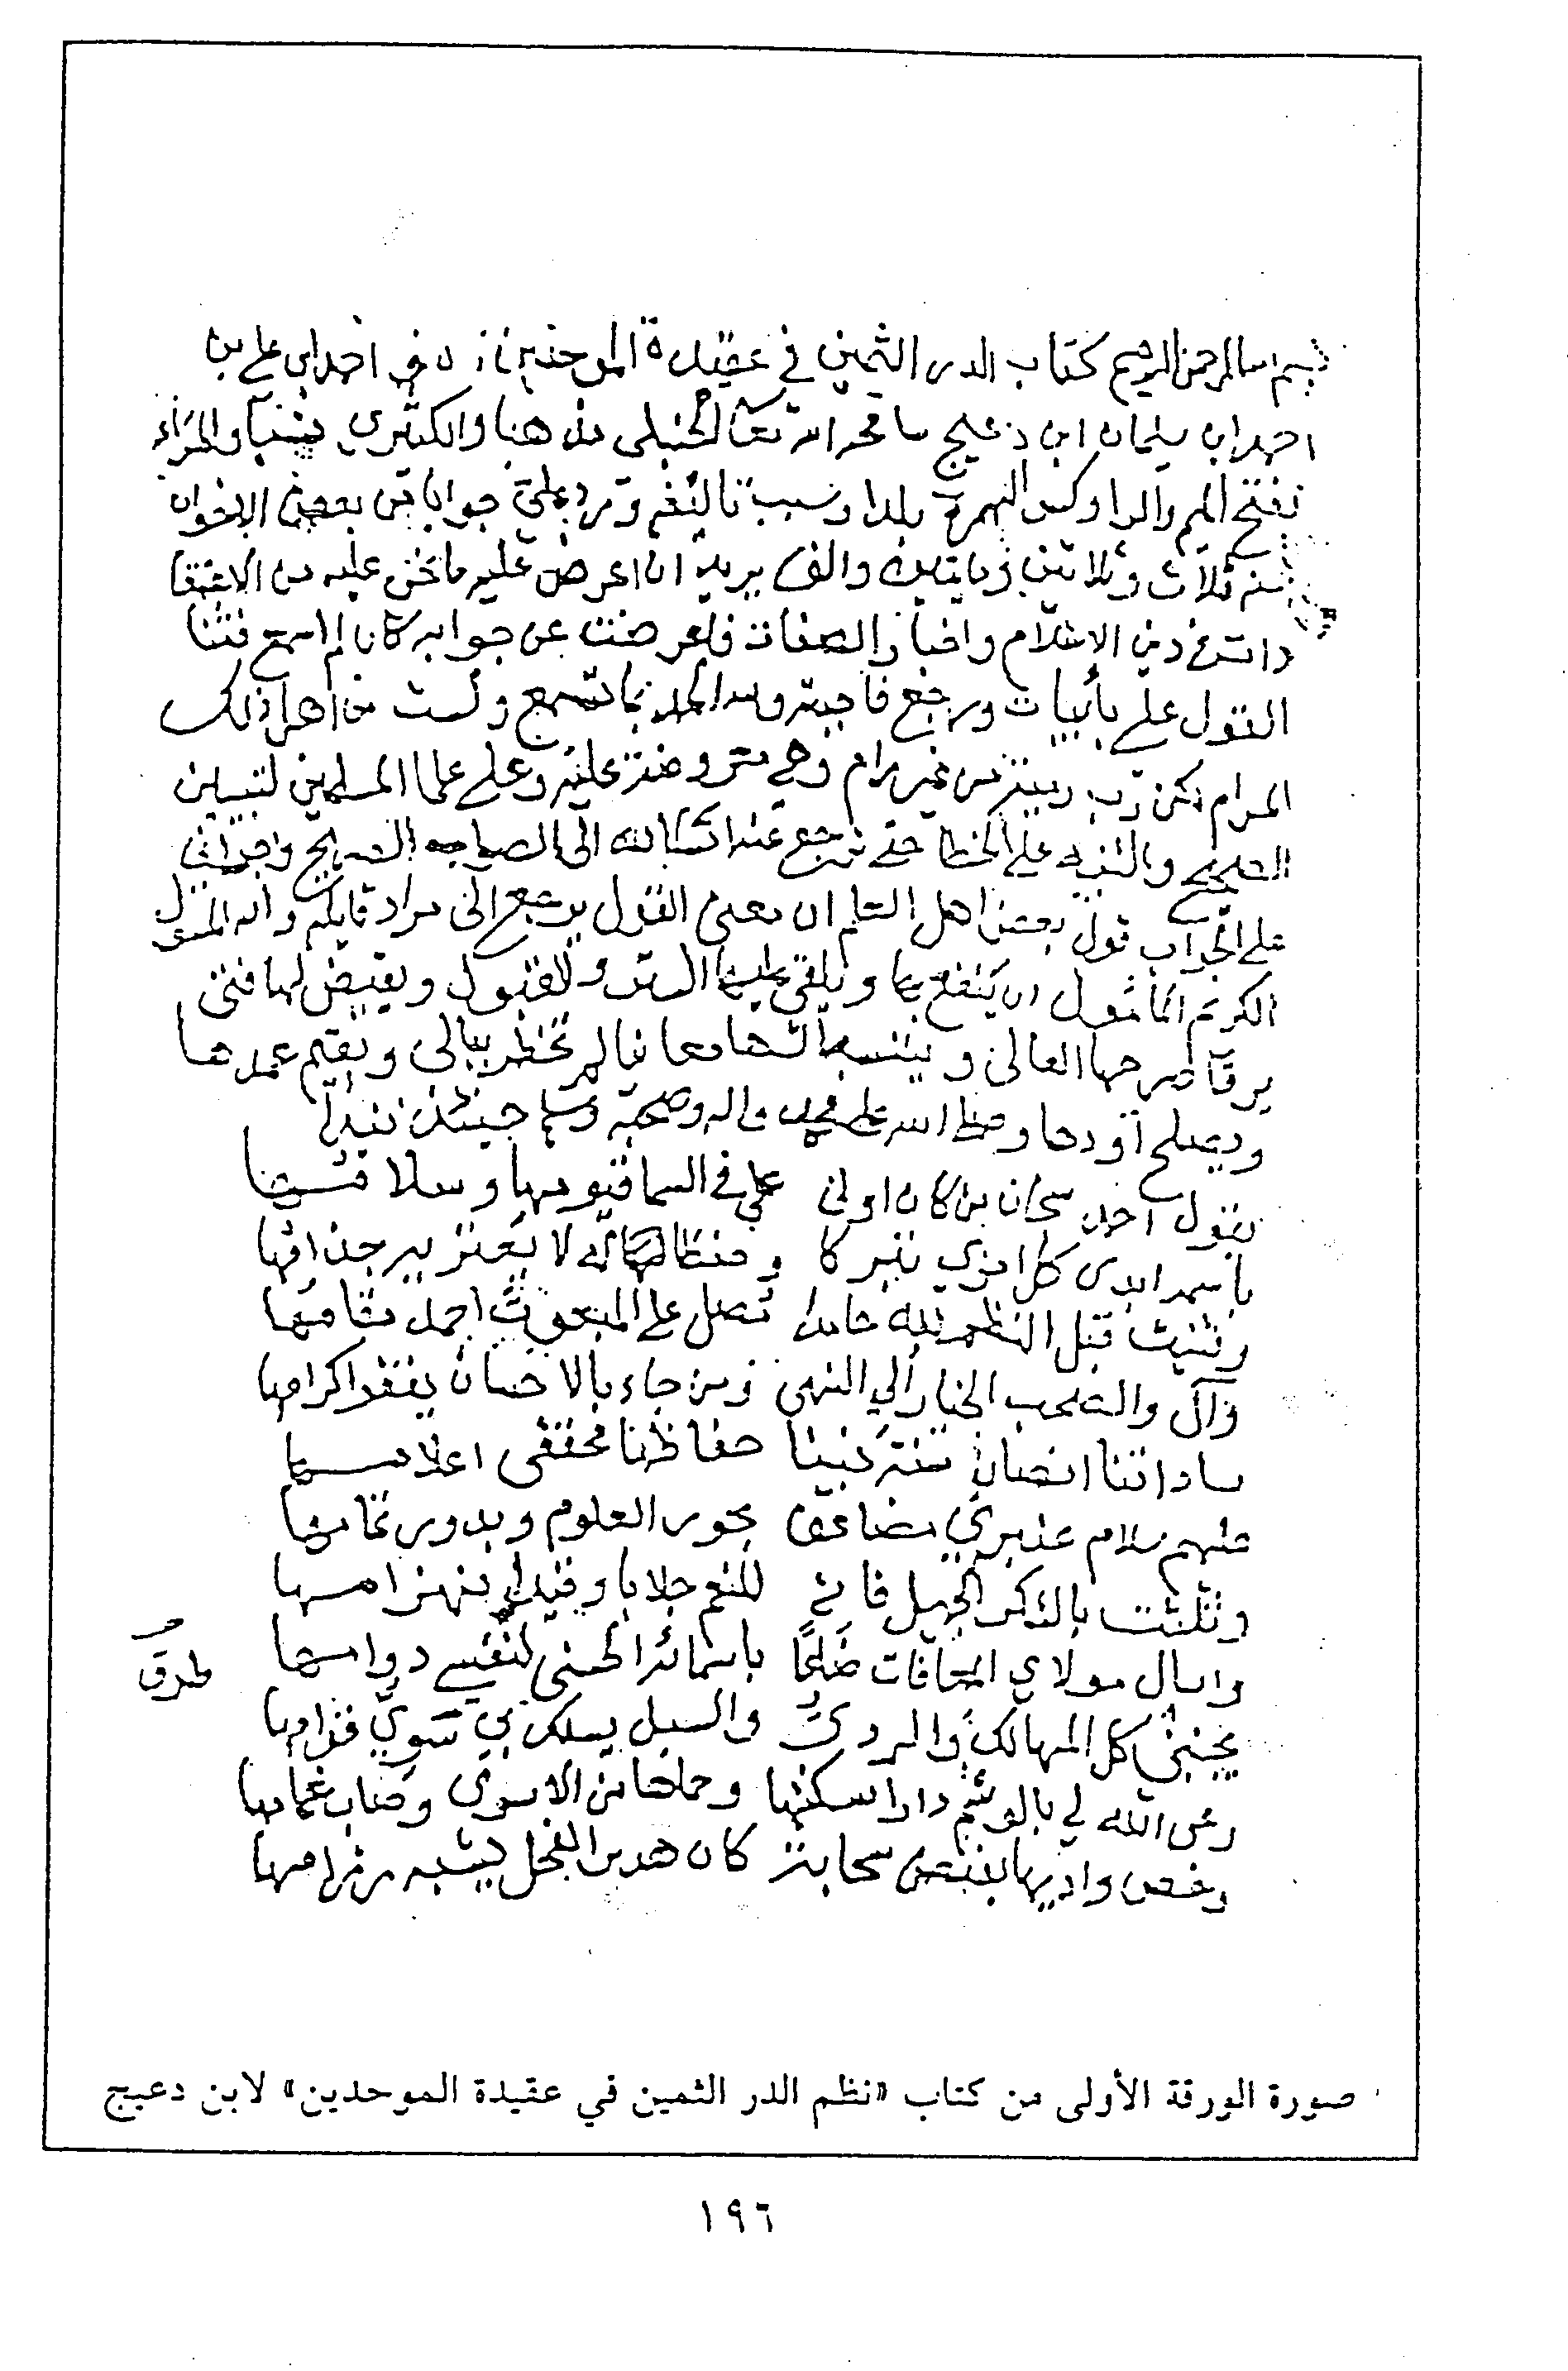 بسم الله الرحمن الرحيم كتاب الدر الثمين في عقيدة الموحدين احمد ابن علي بن
احمد ابن سليمان ابن دعيج سامحه الله تعا الحنبلي مذهبا والكثيري نسبا والمرائى
بفتح الميم والرا وكسر الهمزة بلدا وسبب تالیفه ورد علي جوابا من بعض الاخوان
سنه ثلاث وثلاثين ومايتين والف يريد ان اعرض عليه ما نحن عليه من الاعتقا
د في دين الاسلام واخبار الصفات فاعرضت عن جوابه كان لم اسمع فثنا
القول علي بأبيات ورجع فاجبته ولله الحمد بما تسمع ولست من اهل ذلك
المرام لكن رب رمية من غير رام وهي معروضة عليه وعلى علما المسلمين لتبيين
الصحيح والتنبيه على الخطا حتى نرجع عنه ان شا الله الى الصواب الصريح
على الجواب قول بعض اهل العلم ان معنى القول يرجع الى مراد قايله والله المسؤل
الكريم المأمول ان ينفع بها ويلقي عليها الستر والقبول ويقيض لها فتى
يرقا صرحها العالي و معانيا لم تخطر ببالي ويقيم عمدها
ويصلح أودها وصلى الله على محمد واله وصحبه وسلم حينئذ نبدا
يقول احمد سبحان من كان اولى علي في السما قيومها وسلامها
باسمه ابدى كل امري تبركا
وثنيت قبل النظم لله حامدا تصل على المبعوث
وآل والصحب الخيار أولي النهى ومن جاء بالاحسان يقفو اكرامها
ساداتنا انصار سنة نبينا حفاظنا مقتفى اعلامها
عليهم سلام عنبري مضاعف بحور العلوم وبدور تمامها
وثلثت بالذكر الجميل فانه للغم جلابا
واسال مولاي المعافات ضارعا باسمائه الحسنى لنفسي دوامها
طرق
يجنبني كل المهالك والردى والسبل يسلك بي سوي قوامها
رعى الله لي بالوشم دارا سكنتها وحماها من الاسوى وصاب غمامها
وخص واديها بفيض سحابة كان هدير الفحل يشبه رزامها
صورة الورقة الأولى من كتاب «نظم الدر الثمين في عقيدة الموحدين» لابن دعيج
١٩٦